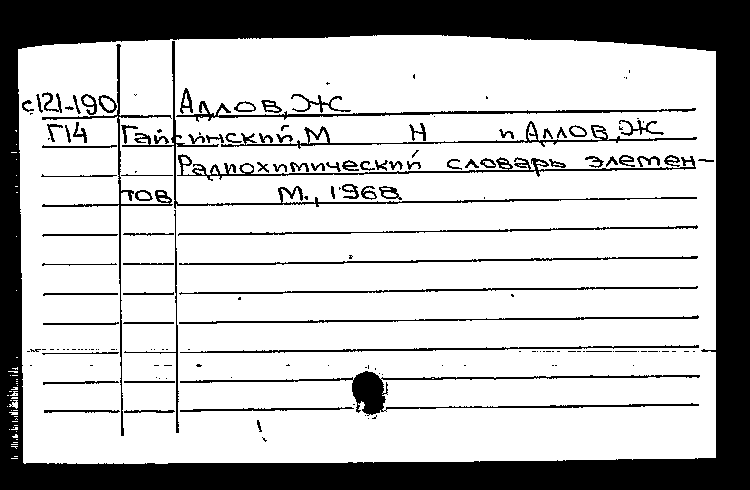 с121-190 Адлов, Ж
Г14 Гайсинский, М Н и Адлов, Ж
Радиохимический словарь элемен-
тов М., 1968